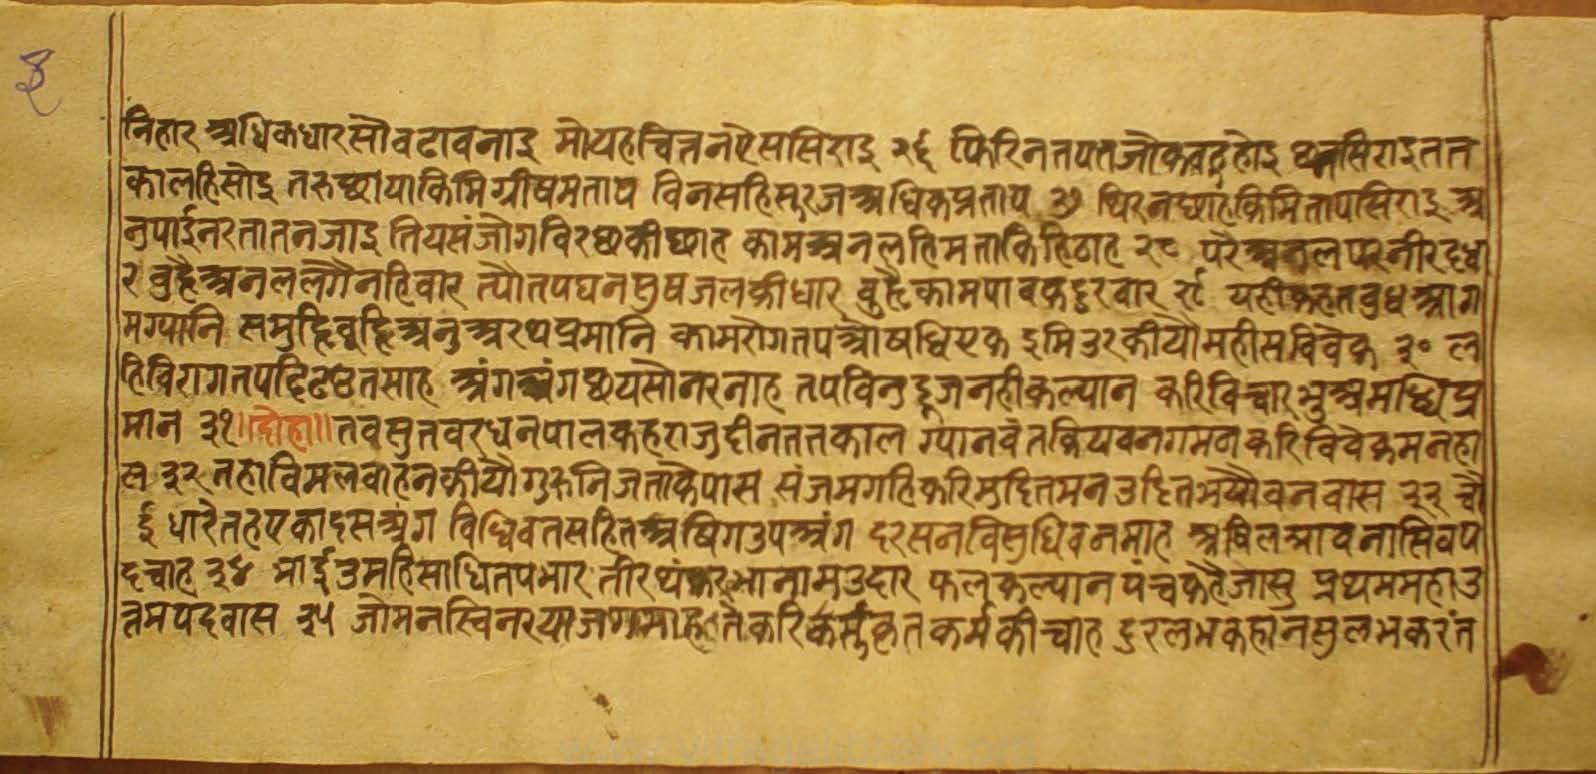 ३
निहार अधिकधारसौवटावनाइ मोयहचित्तनपैससिराइ २६ फिरिनतपतजौकबहुहोइ छनसिराइतत
कालहिसोइ तरुछायाकिमिग्रीषमताप विनसहिसूरजअधिकप्रताप २७ थिरनछाहकिमितापसिराइ अ
नुपाईनरतातनजाइ तियसंजोगविरछकीछाह कामअनलतिमताकिहिठाह २८ परैअनलपरनीरदधा
र वुहैअनललगैनहिवार त्यौतपघनपुषजलकीधार वुहैकामपावकदुरवार २९ यहीकहतवुधआग
मग्यानि समुहिवुहिअनुअरथप्रमानि कामरोगतपऔषधिएक इमिउरकीयौमहीसविवेक ३० ल
हिविरागतपदिढउतसाह अंगअंगछयसौनरनाह तपविनुदूजनहीकल्यान करिविचारभुअमछिप्र
मान ३१॥दोहा॥तवसुतवरधनपालकहराजुदीनततकाल ग्यानवंतकियवनगमणकरिविवेकमनहा
ल ३२ तहाविमलवाहनकीयौगुरुनिजताकैपास संजमगहिकरिमुदितमनउदितभयौवनवास ३३ चौ
ई धारैतहएकादसअंग विधिवतसहितअषिगउपअंग दरसनविसुधिवनमाह अषिलभावनासिवप
दचाह ३४ भाईउमहिसाधितपभार तीरथंकरभानामउदार फलकल्यानपंचकहैजासु प्रथममहाउ
तमपदवास ३५ जोमनस्विनर तैकरि कृतकर्मकीचाह दुरलभकहानसुलभकरंत